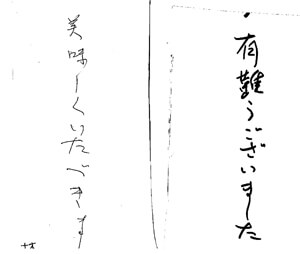 有難うございました
美味しくいただきます